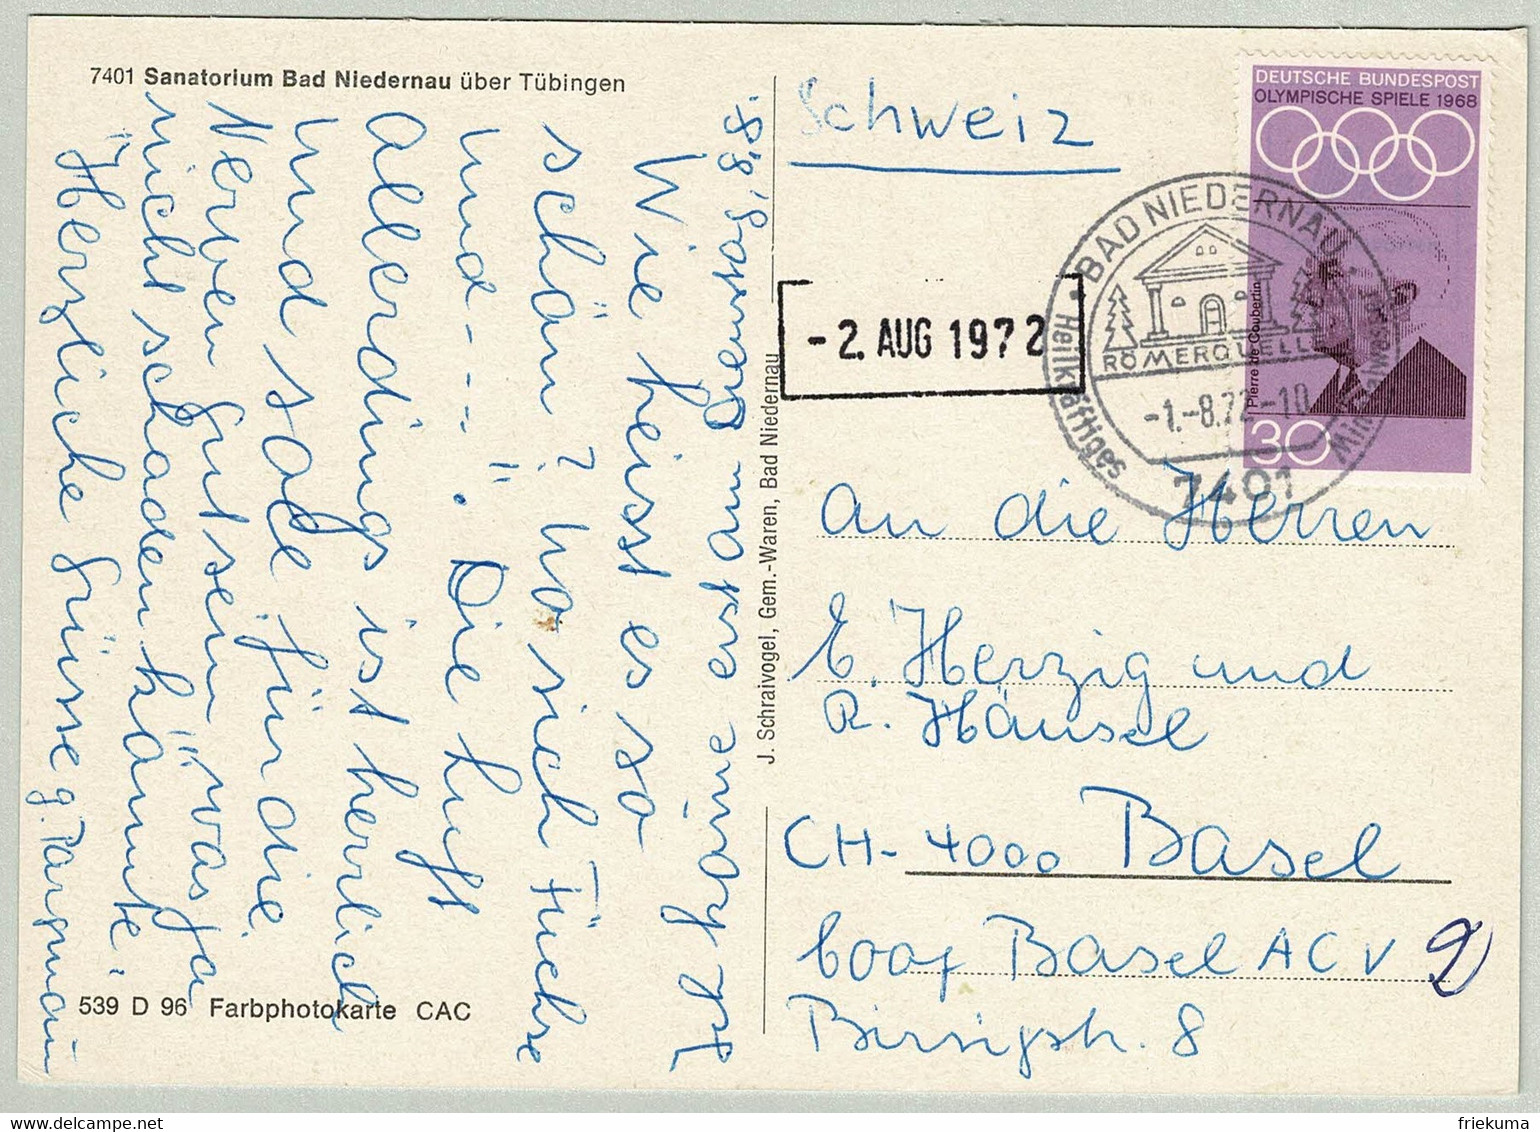 7401 Sanatorium Bad Niedernau über Tübingen
Komme erst am Dienstag, 8.8.
Wie heisst es so
schön? wo sich Füchse
und - - - - ". Die Luft
allerdings ist herrlich
und soll für die
Nerven gut sein, was ja
nicht schaden könnte.
Herzliche Grüsse
539 D 96 Farbphotokarte CAC
J. Schraivogel, Gem.-Waren, Bad Niedernau
Schweiz
DEUTSCHE BUNDESPOST
OLYMPISCHE SPIELE 1968
Pierre de Coubertin
30
BAD NIEDERNAU
RÖMERQUELLE
-1.-8.72-10
Heilkräftiges
7401
-2. AUG 1972
An die Herren
E. Herzig und
R. Häusel
CH-4000 Basel
Basel ACV
Birsigstr. 8
friekuma